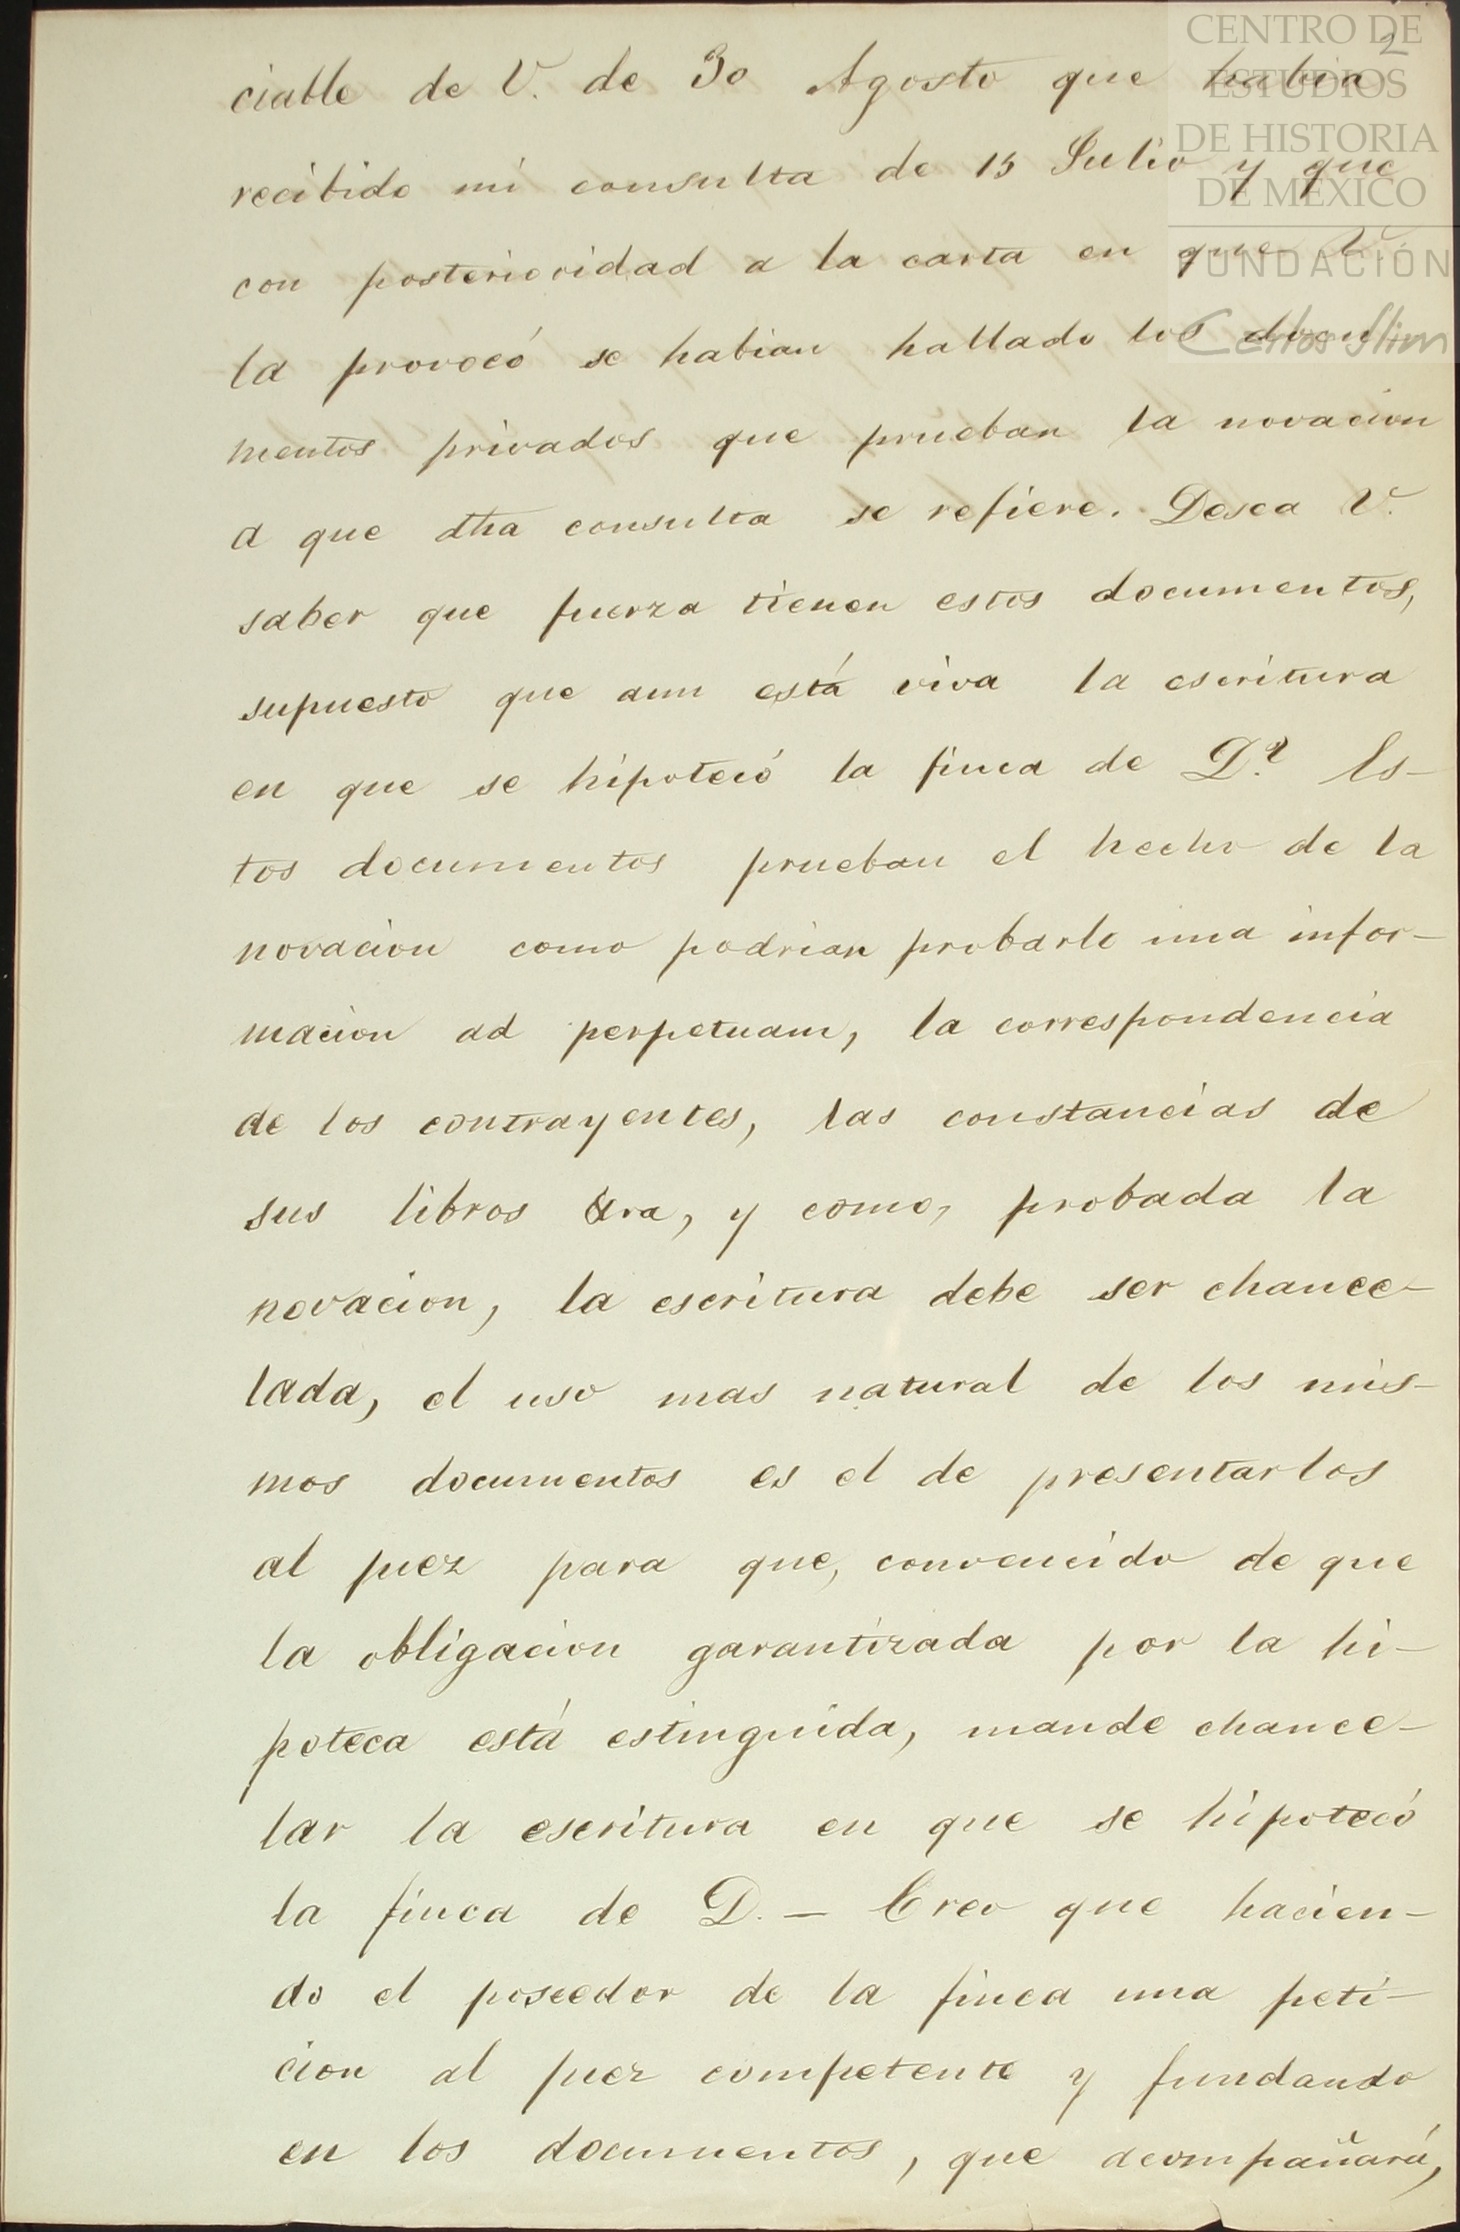 CENTRO DE
ESTUDIOS
DE HISTORIA
DE MÉXICO
FUNDACIÓN
Carlos Slim
2
ciable de V. de 30 Agosto que habia
recibido mi consulta de 15 Julio y que
con posterioridad a la carta en que V.
la provocó se habian hallado los docu-
mentos privados que prueban la novacion
a que dha consulta se refiere. Desea V.
saber que fuerza tienen estos documentos,
supuesto que aun está viva la escritura
en que se hipotecó la finca de D.ª Es-
tos documentos prueban el hecho de la
novacion como podrian probarlo una infor-
macion ad perpetuam, la correspondencia
de los contrayentes, las constancias de
sus libros &ra, y como, probada la
novacion, la escritura debe ser chance-
lada, el uso mas natural de los mis-
mos documentos es el de presentarlos
al juez para que, convencido de que
la obligacion garantizada por la hi-
poteca está estinguida, mande chance-
lar la escritura en que se hipotecó
la finca de D. — Creo que hacien-
do el poseedor de la finca una peti-
cion al juez competente y fundando
en los documentos, que acompañará,